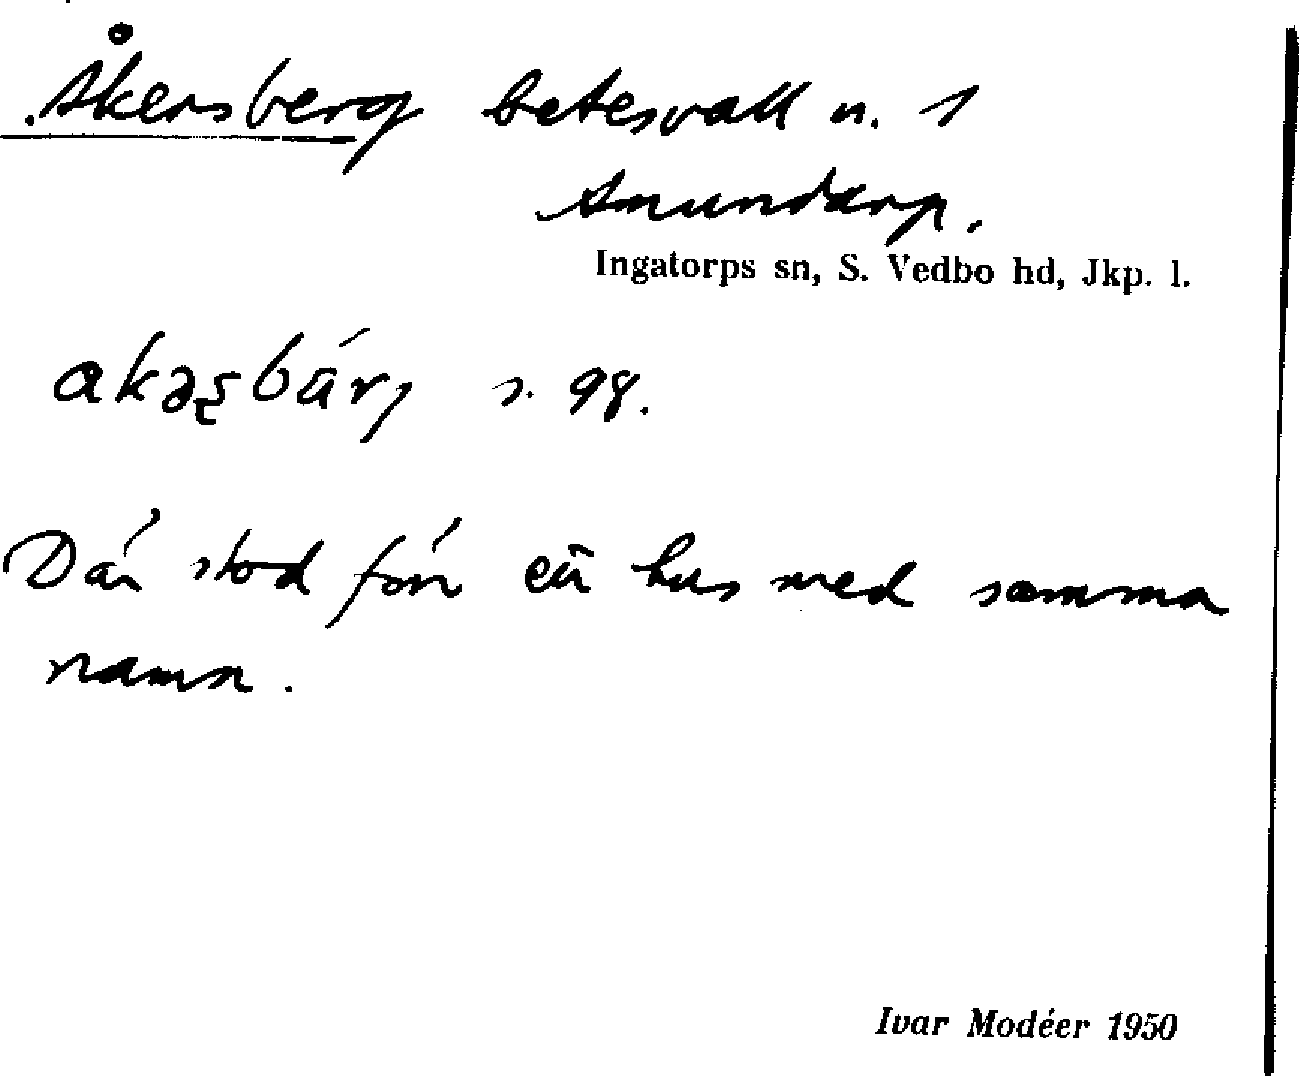 Åkersberg betesvall n. 1
Amundarp.
Ingatorps sn, S. Vedbo hd, Jkp. l.
akəʂbárj s. 98.
Där stod förr ett hus med samma
namn.
Ivar Modéer 1950